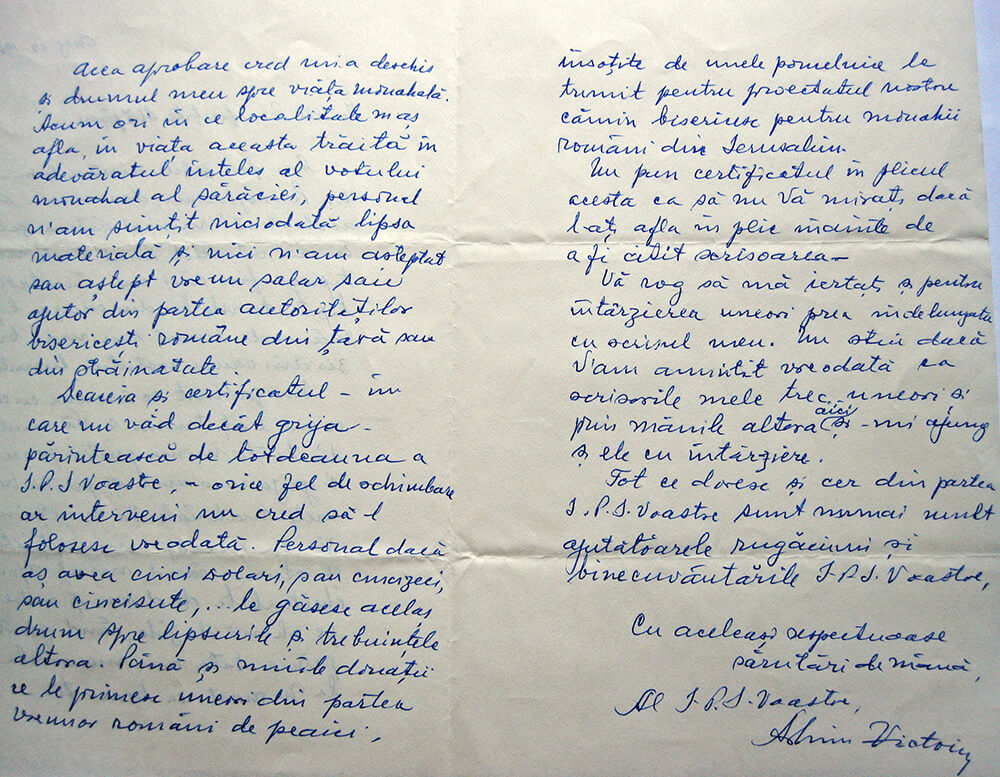 Acea aprobare cred mi-a deschis
și drumul meu spre viata monahală.
Acum ori în ce localitate m'aș
afla, în viața aceasta trăită în
adevăratul înteles al votului
monahal al sărăciei, personal
n'am simțit niciodată lipsa
materială și nici n'am asteptat
sau aștept vreun salar, sau
ajutor din partea autorităților
bisericești române din țară sau
din străinatate.
Deaceia si certificatul – în
care nu văd decât grija
părintească de totdeauna a
I.P.S Voastre, – orice fel de schimbare
ar interveni nu cred să-l
folosesc vreodată. Personal dacă
aș avea cinci dolari, sau cincizeci,
sau cincisute,... le găsesc acelaș
drum spre lipsurile și trebuințele
altora. Până și micile donații
ce le primesc uneori din partea
vreunor români de peaici,
însoțite de unele pomelnice le
trimit pentru proectatul nostru
cămin bisericesc pentru monahii
români din Ierusalim.
Nu pun certificatul în plicul
acesta ca să nu Vă mirați dacă
l-ați afla în plic inainte de
a fi citit scrisoarea –
Vă rog să mă iertați și pentru
întârzierea uneori prea indelungata
cu scrisul meu. Nu stiu dacă
V'am amintit vreodată ca
scrisorile mele trec uneori și
prin mânile altora aici și - mi ajung
și ele cu întârziere.
Tot ce doresc și cer din partea
I.P.S. Voastre sunt numai mult
ajutătoarele rugăciuni și
binecuvântările I.P.S. Voastre,
Cu aceleași respectuoase
sărutări de mână,
Al I.P.S. Voastre,